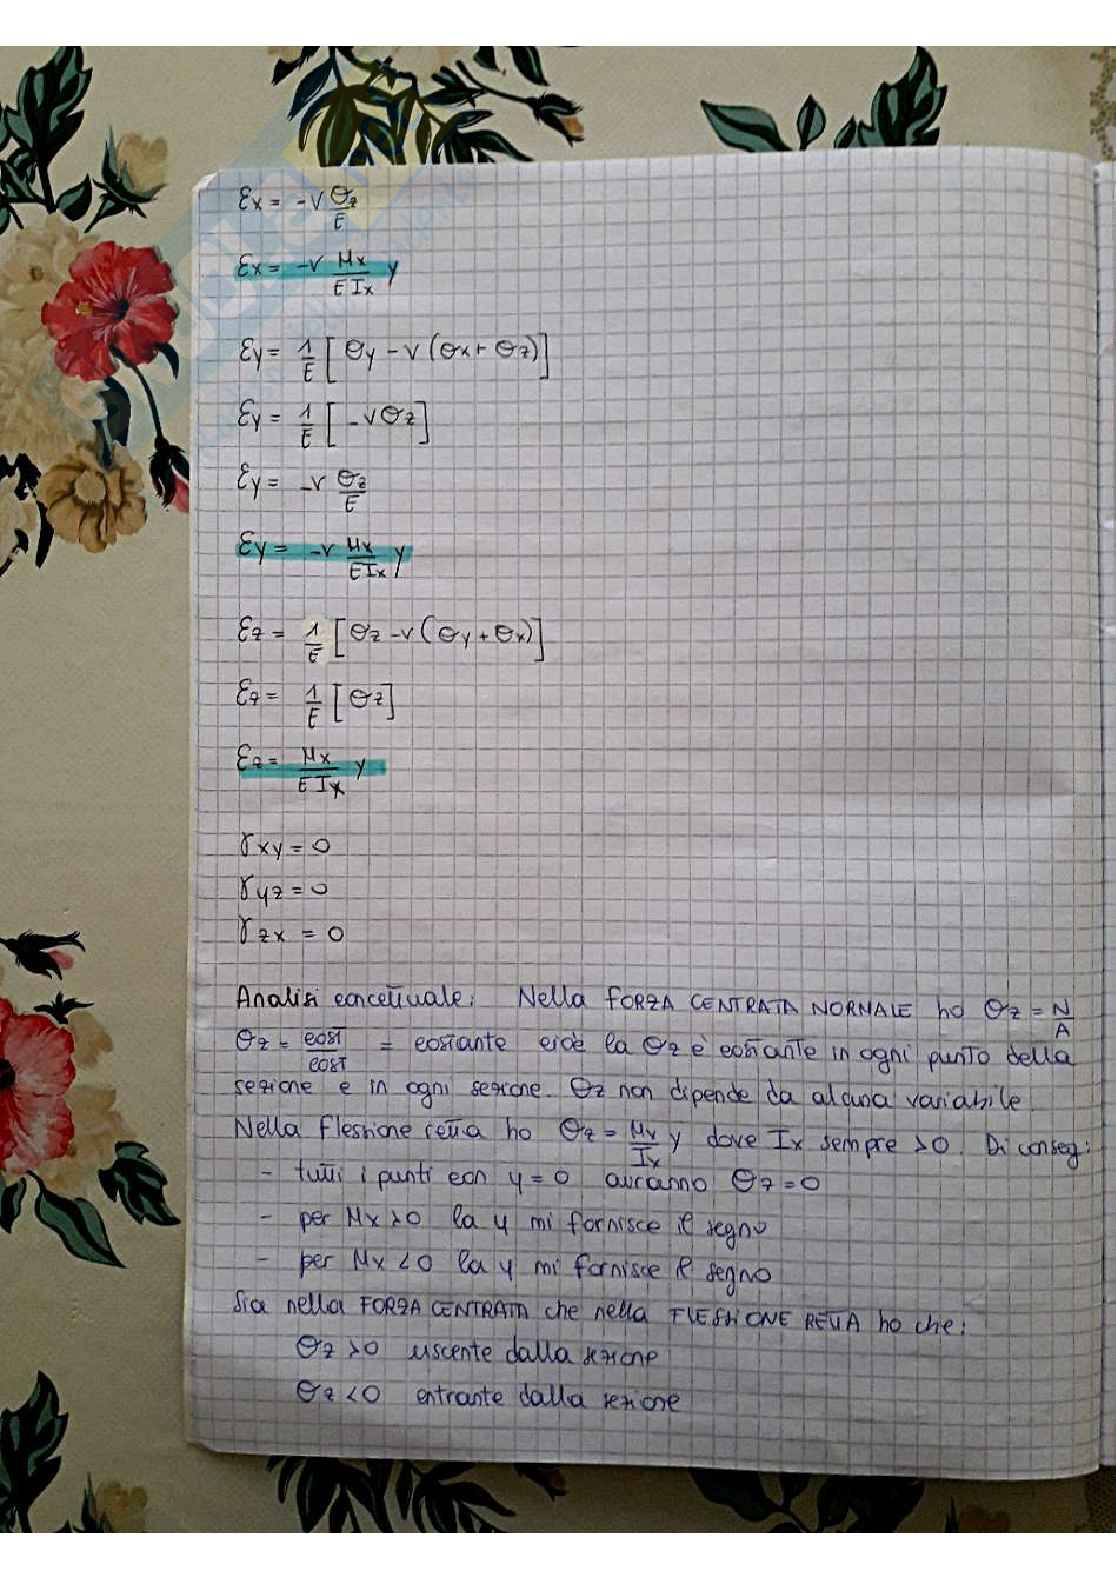 εx = -ν σz/E
εx = -ν Mx/EIx y
εy = 1/E [σy - ν(σx + σz)]
εy = 1/E [-νσz]
εy = -ν σz/E
εy = -ν Mx/EIx y
εz = 1/E [σz - ν(σy + σx)]
εz = 1/E [σz]
εz = Mx/EIx y
γxy = 0
γyz = 0
γzx = 0
Analisi concettuale: Nella FORZA CENTRATA NORMALE ho σz = N/A
σz = cost/cost = costante cioè la σz è costante in ogni punto della
sezione e in ogni sezione. σz non dipende da alcuna variabile
Nella Flessione retta ho σz = Mx/Ix y dove Ix sempre >0. Di conseg:
- tutti i punti con y = 0 avranno σz = 0
- per Mx >0 la y mi fornisce il segno
- per Mx <0 la y mi fornisce il segno
Sia nella FORZA CENTRATA che nella FLESSIONE RETTA ho che:
σz >0 uscente dalla sezione
σz <0 entrante dalla sezione